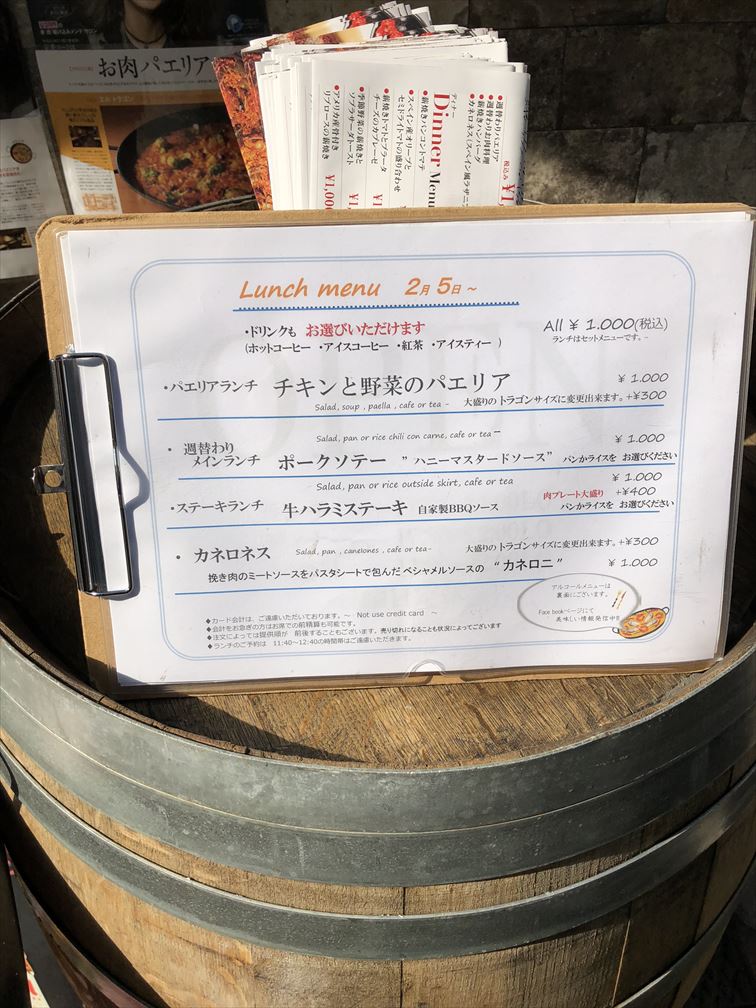 お肉パエリア
Dinner Menu
ディナー
税込み
●週替わりパエリア
●週替わりお肉料理
●薪焼きハンバーグ
●カネロネス(スペイン風ラザニ
●薪焼きパンコントマテ
●スペイン産オリーブと
セミドライトマトの盛り合わせ
●薪焼きトマトとブラータ
チーズのカプレーゼ
●季節野菜の薪焼きと
ソブラサーダトースト
●アメリカ産骨付き
リブロースの薪焼き
¥1,000
Lunch menu 2月 5日 ~
・ドリンクも お選びいただけます
(ホットコーヒー ・アイスコーヒー ・紅茶 ・アイスティー )
All ¥ 1.000(税込)
ランチはセットメニューです。-
・パエリアランチ チキンと野菜のパエリア ¥ 1.000
Salad, soup , paella , cafe or tea - 大盛りの トラゴンサイズに変更出来ます。+¥300
Salad, pan or rice chili con carne, cafe or tea ー ¥ 1.000
・ 週替わり
メインランチ ポークソテー ” ハニーマスタードソース” パンかライスを お選びください
Salad, pan or rice outside skirt, cafe or tea ¥ 1.000
肉プレート大盛り +¥400
・ステーキランチ 牛ハラミステーキ 自家製BBQソース パンかライスを お選びください
・ カネロネス Salad, pan , canelones , cafe or tea- 大盛りの トラゴンサイズに変更出来ます。+¥300
挽き肉のミートソースをパスタシートで包んだ ベシャメルソースの “カネロニ” ¥ 1.000
アルコールメニューは
裏面にございます。
Face bookページにて
美味しい情報発信中!!
◆カード会計は、ご遠慮いただいております。~ Not use credit card ~
◆会計をお急ぎの方はお席での前精算も可能です。
◆注文によっては提供順が 前後することもございます。売り切れになることも状況によってございます
◆ランチのご予約は 11:40~12:40の時間帯はご遠慮いただきます。